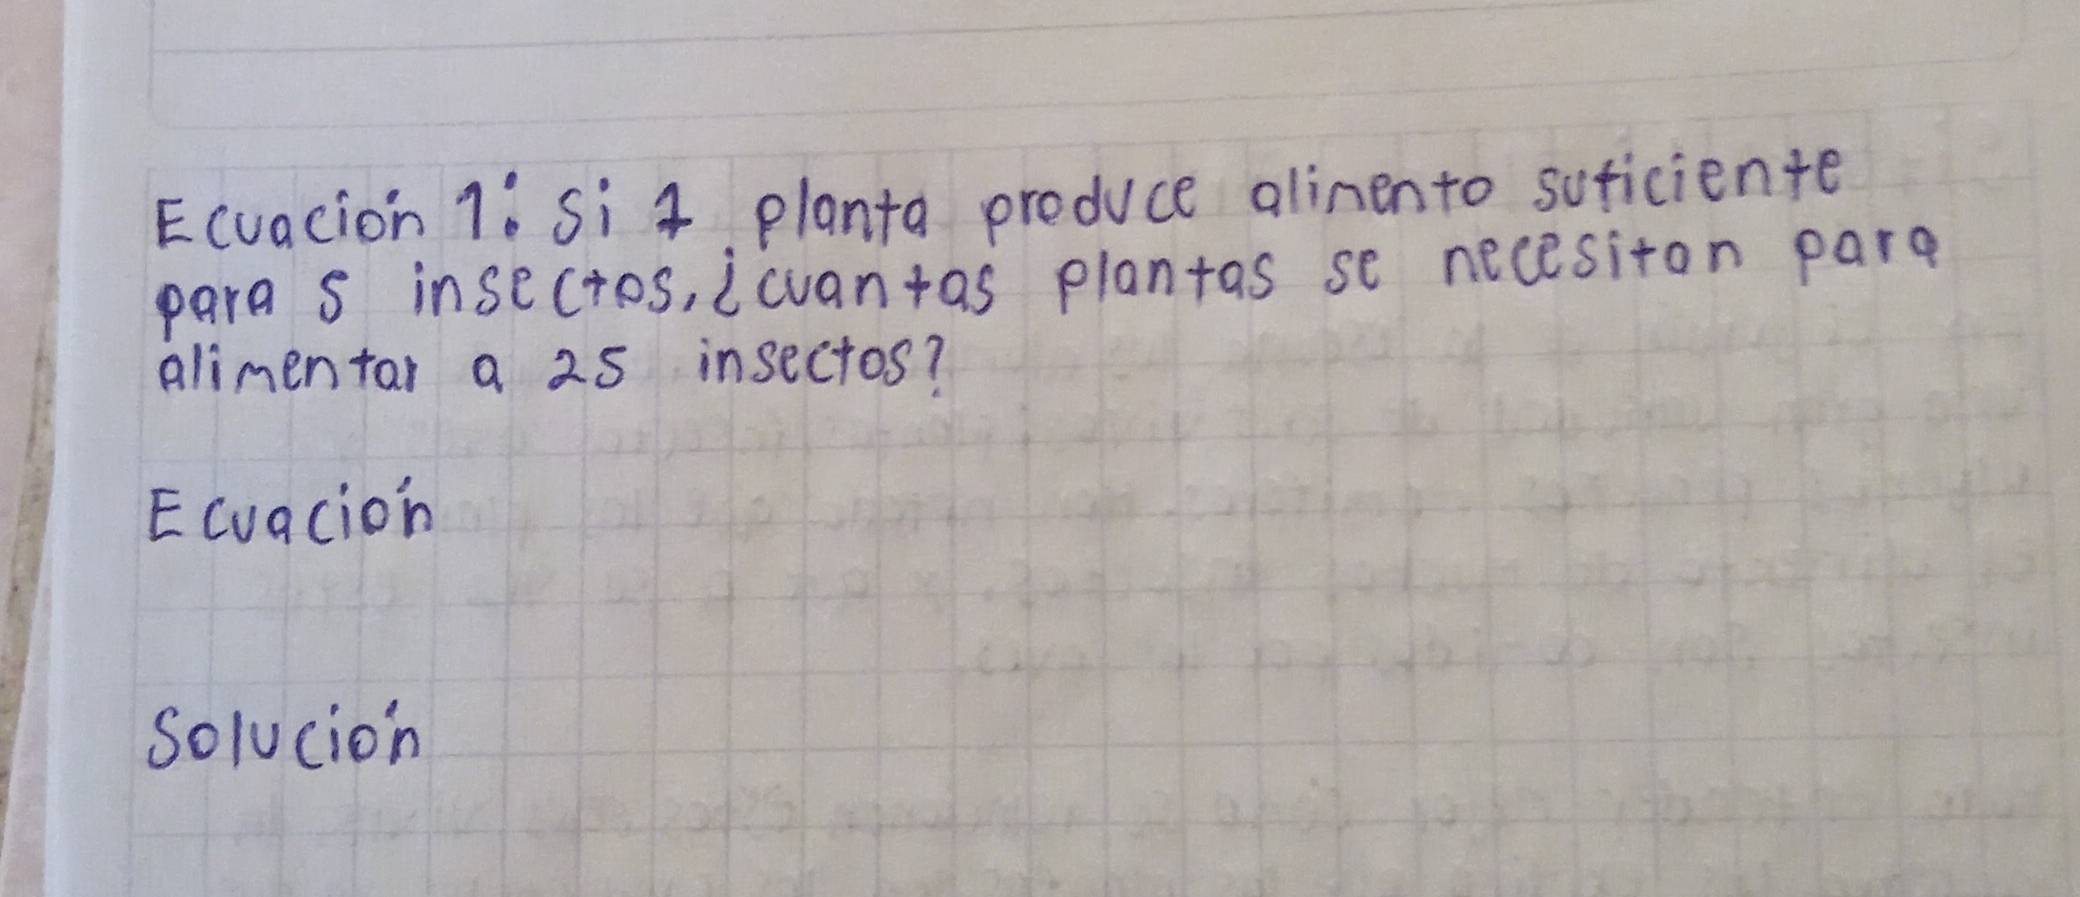 Ecuación 1: Si 1 planta produce alimento suficiente
para 5 insectos, ¿cuantas plantas se necesitan para
alimentar a 25 insectos?
Ecuación
Solución